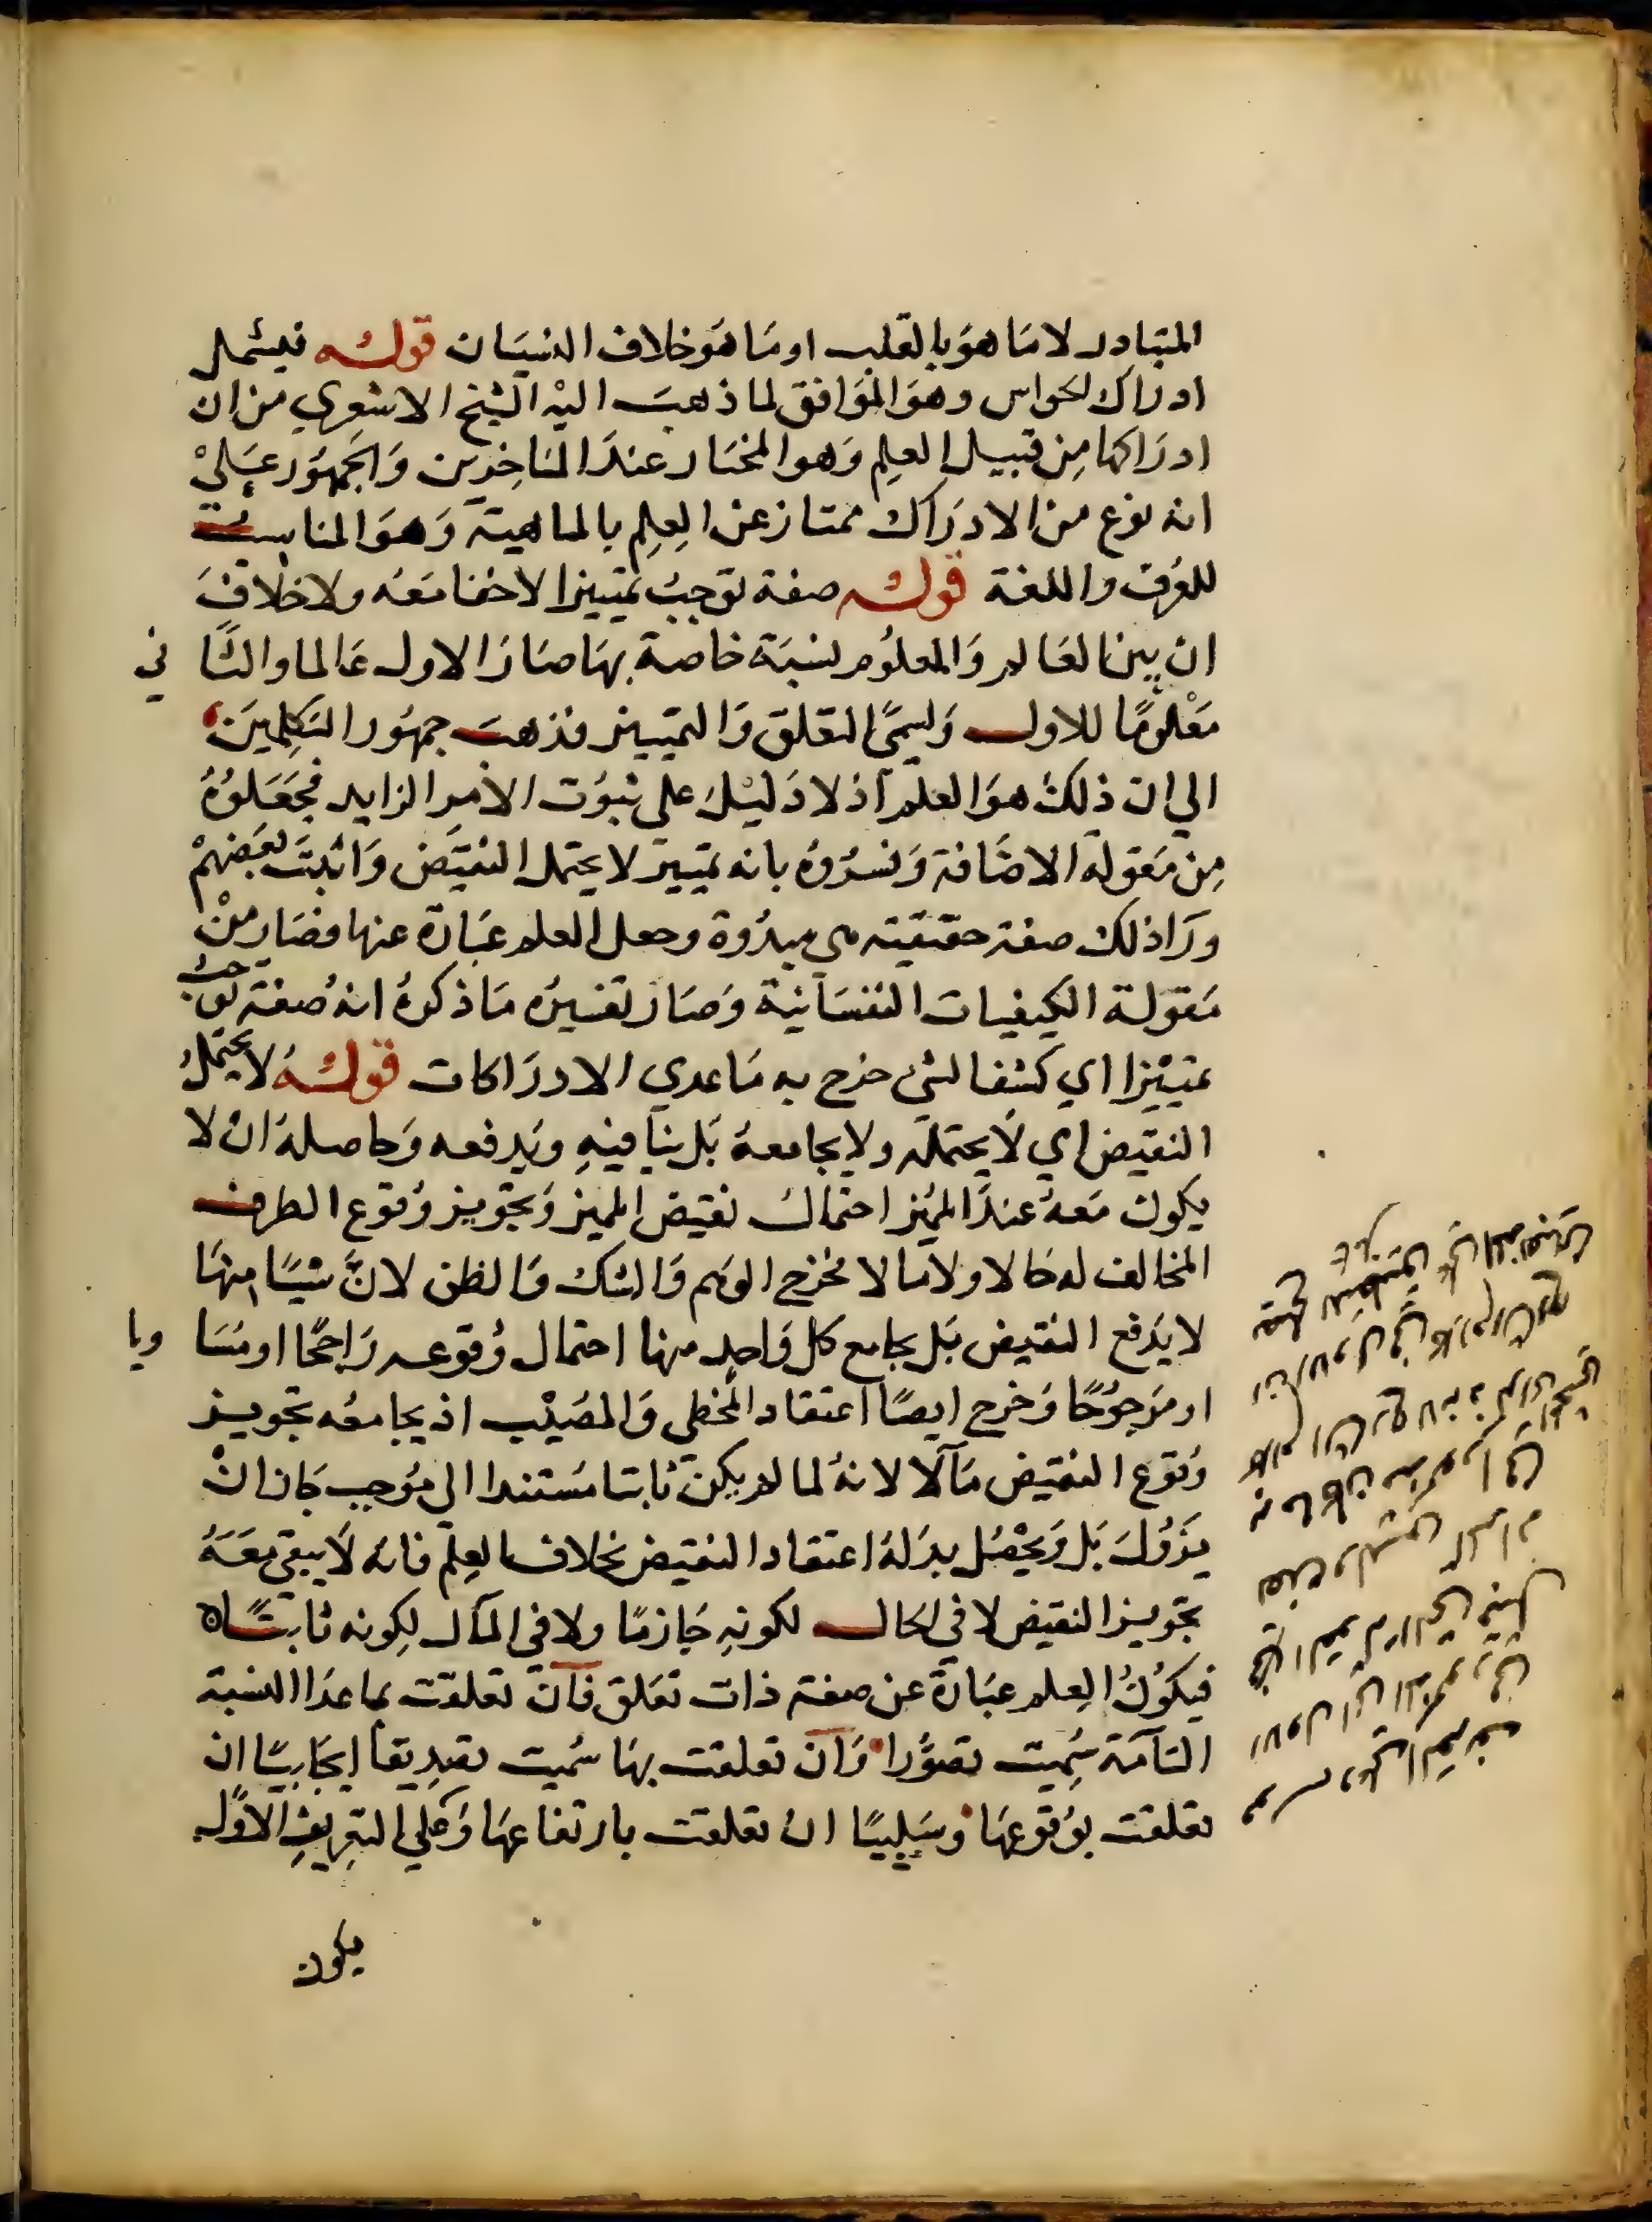 المتبادر لا مَا هوَ بالقلب او مَا هوَ خلاف النسيَان قولـه فيشمل
ادراك الحواس وهوَ الموَافق لما ذهبَ اليْه الشيخ الاشعري من ان
ادرَاكها مِن قبيل العِلِم وَهو المختَار عندَ المتاخِرين وَالجمهوُر عَلىْ
انه نوع من الادرَاك ممتاز عن العِلِم بالماهية وَهوَ المناسبُ
للعُرف واللغة قولـه صفة توجبُ تمييزا لا خفا مَعَه ولا خلافَ
ان بين العَالم وَالمعلوُم نسبَة خاصة بهَا صَارَ الاول عَالما والثَّاني
مَعْلومًا للاول وَيسمىَّ التعلق وَالتمييز فذهبَ جمهوُر المتكلِمينَ
الي ان ذلكَ هوَ العلم اذ لا دَليْلَ على ثبوُت الامر الزايد فجَعَلوُهُ
مِن مَقولة الاضَافة وَفسرُوهُ بانه تمييز لا يحتمل النقيَض وَاثبتَ بَعضهمْ
ورَا ذلك صفة حقيقية هي مبدؤه وجعل العلم عبَارة عنها فصَار منْ
مَقولة الكيفيات النفسَانية وَصَارَ تفسيرُه مَا ذكرهُ انهُ صفة توجبُ
تمييْزا اي كشفا لشئ خرج به مَا عدي الادرَاكات قولـهُ لا يحتمَلُ
النقيض اي لا يحتمله ولا يجامعهُ بَل ينافيهِ ويَدفعه وَحاصلهُ انْ لا
يكون مَعهُ عندَ المميَز احتمالُ نقيض المميز وَتجويز وُقوع الطرف
المخالف له حَالا ولا مآلا فخرج الوهم وَالشك وَالظن لانَّ شيئَا منهَا
لا يدَفع النقيض بَل يجامع كل وَاحد منها احتمال وُقوعـه رَاجحًا او مسَاويا
او مَرجوُحًا وَخرج ايضًا اعتقاد المخطي وَالمصَيْب اذ يجامعُه تجويـز
وُقوع النقيض مَآلا لانهُ لما لم يكن ثابتا مَستندا الي موُجب كَان انْ
يزَوُلَ بَل وَيحْصُل بدلهُ اعتقاد النقيض بخلاف العِلم فانه لَا يبقي مَعَهُ
تجويـز النقيض لا في الحال لكونهِ جَازمًا ولا في المآل لِكونه ثابتًا
فيكوُنُ العِلم عبَارة عن صفة ذات تعَلق فان تعلقت بما عدَا النسبة
التامة سُميت تصوُّرا وَان تعلقت بهَا سُميت تصديقا ايجابيًا ان
تعلقت بوُقوعهَا وَسَلبيًا ان تعلقت بارتفاعهَا وَعَلي التعريفِ الاوَّل
يكون